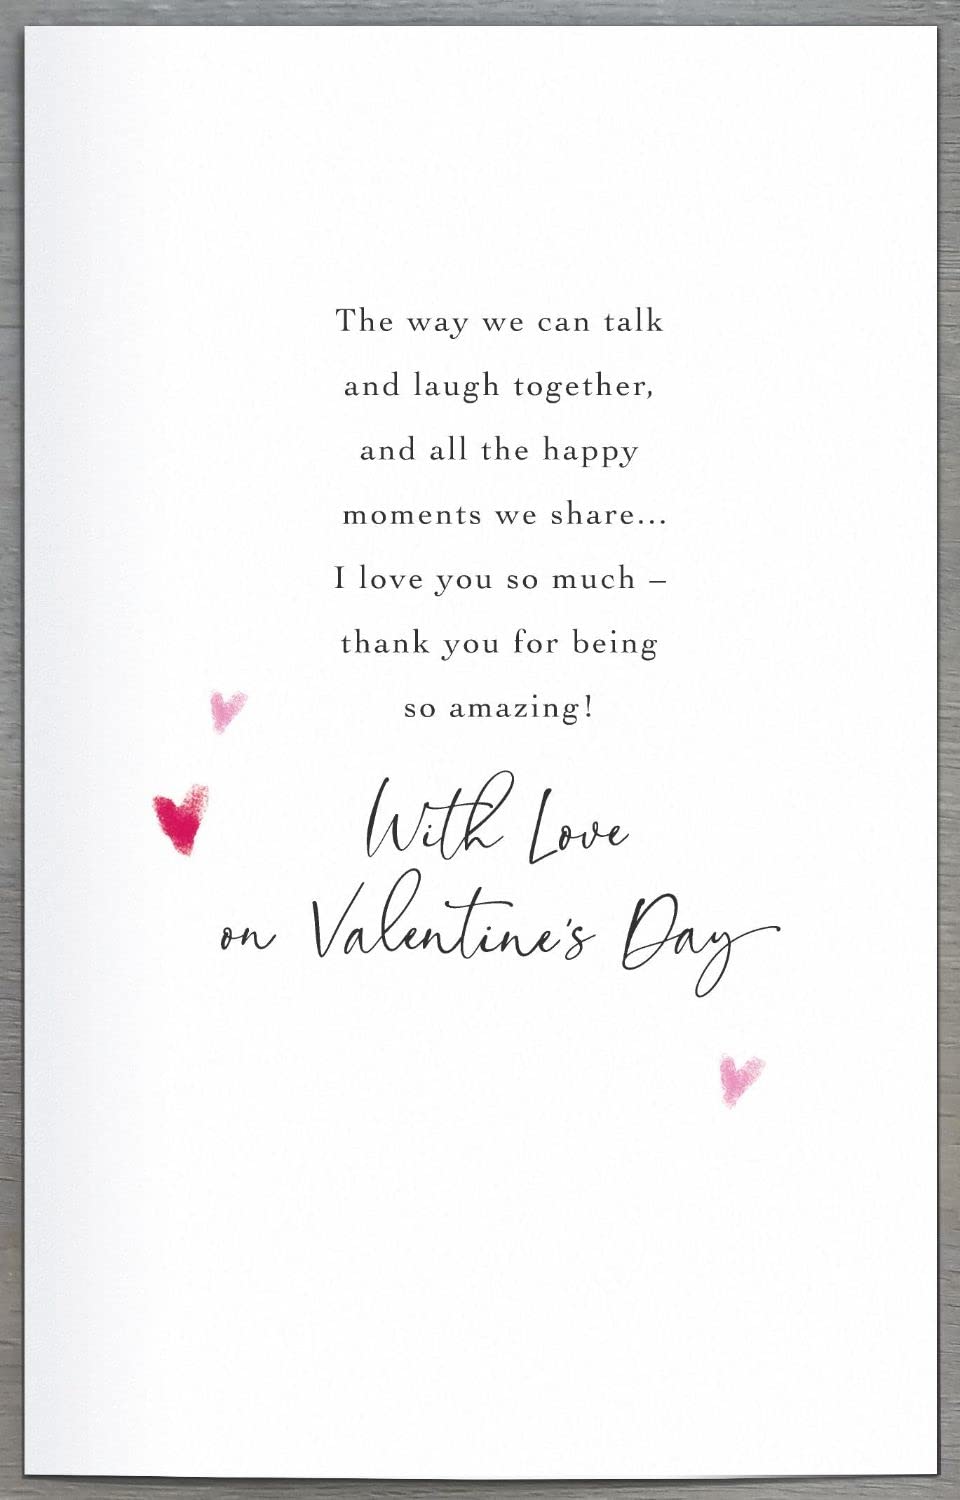 The way we can talk
and laugh together,
and all the happy
moments we share...
I love you so much –
thank you for being
so amazing!
With Love
on Valentine's Day